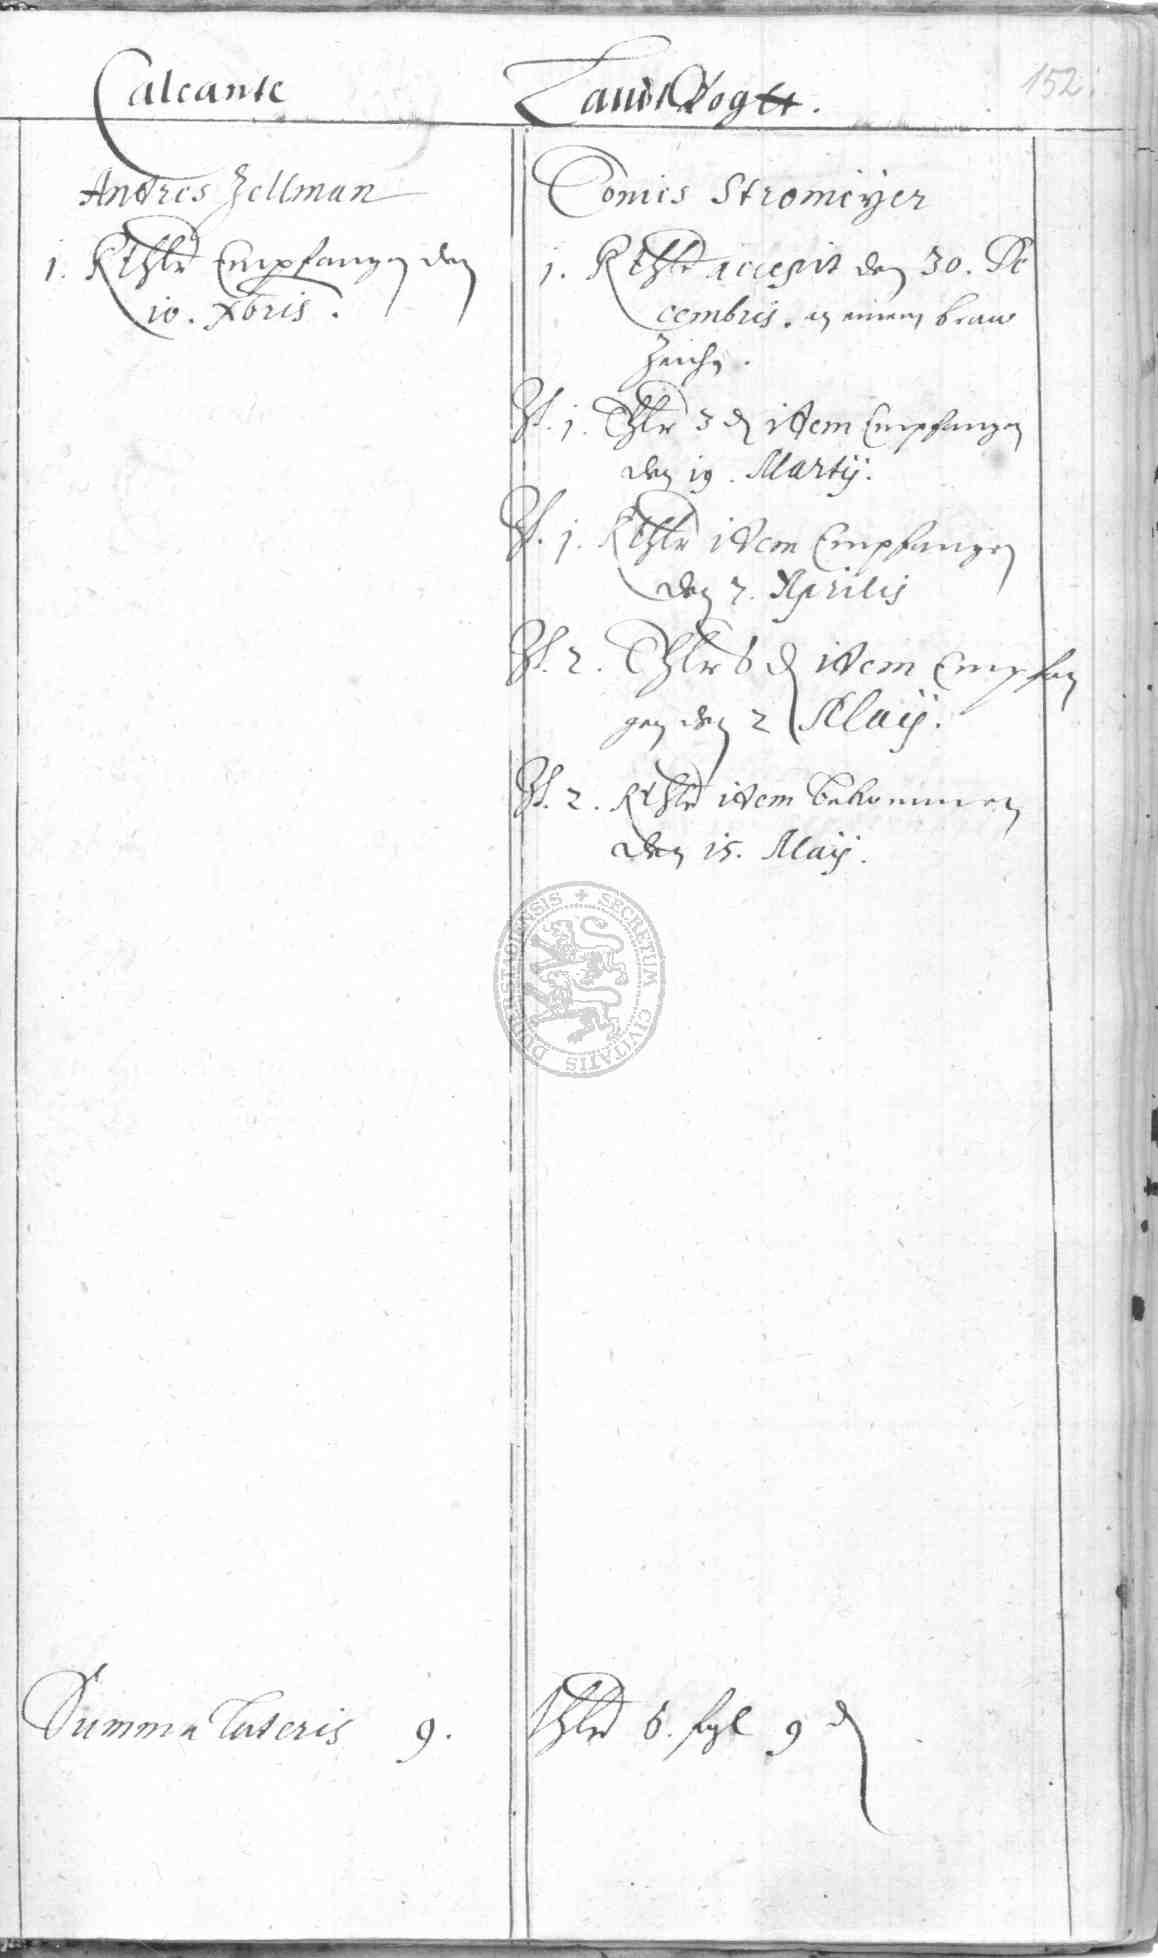 152.
Calcante
Andres Zellman
1. Rthlr Empfangen den
10. Xbris.
Landt Vogtt.
Tonies Stromeÿer
1. Rthlr accepit den 30. De
cembris. in einem braw
Zeichen.
It. 1. Thlr 3 d item Empfangen
den 19. Martÿ.
It. 1. Rthlr item Empfangen
den 7. Aprilis
It. 2. Thlr 6 d item Empfan
gen den 2 Maÿ.
It. 2. Rthlr item bekommen
den 15. Maÿ.
SECRETUM CIVITATIS DUDERSTADENSIS
Summa Lateris 9. thlr 6. sgl 9 d